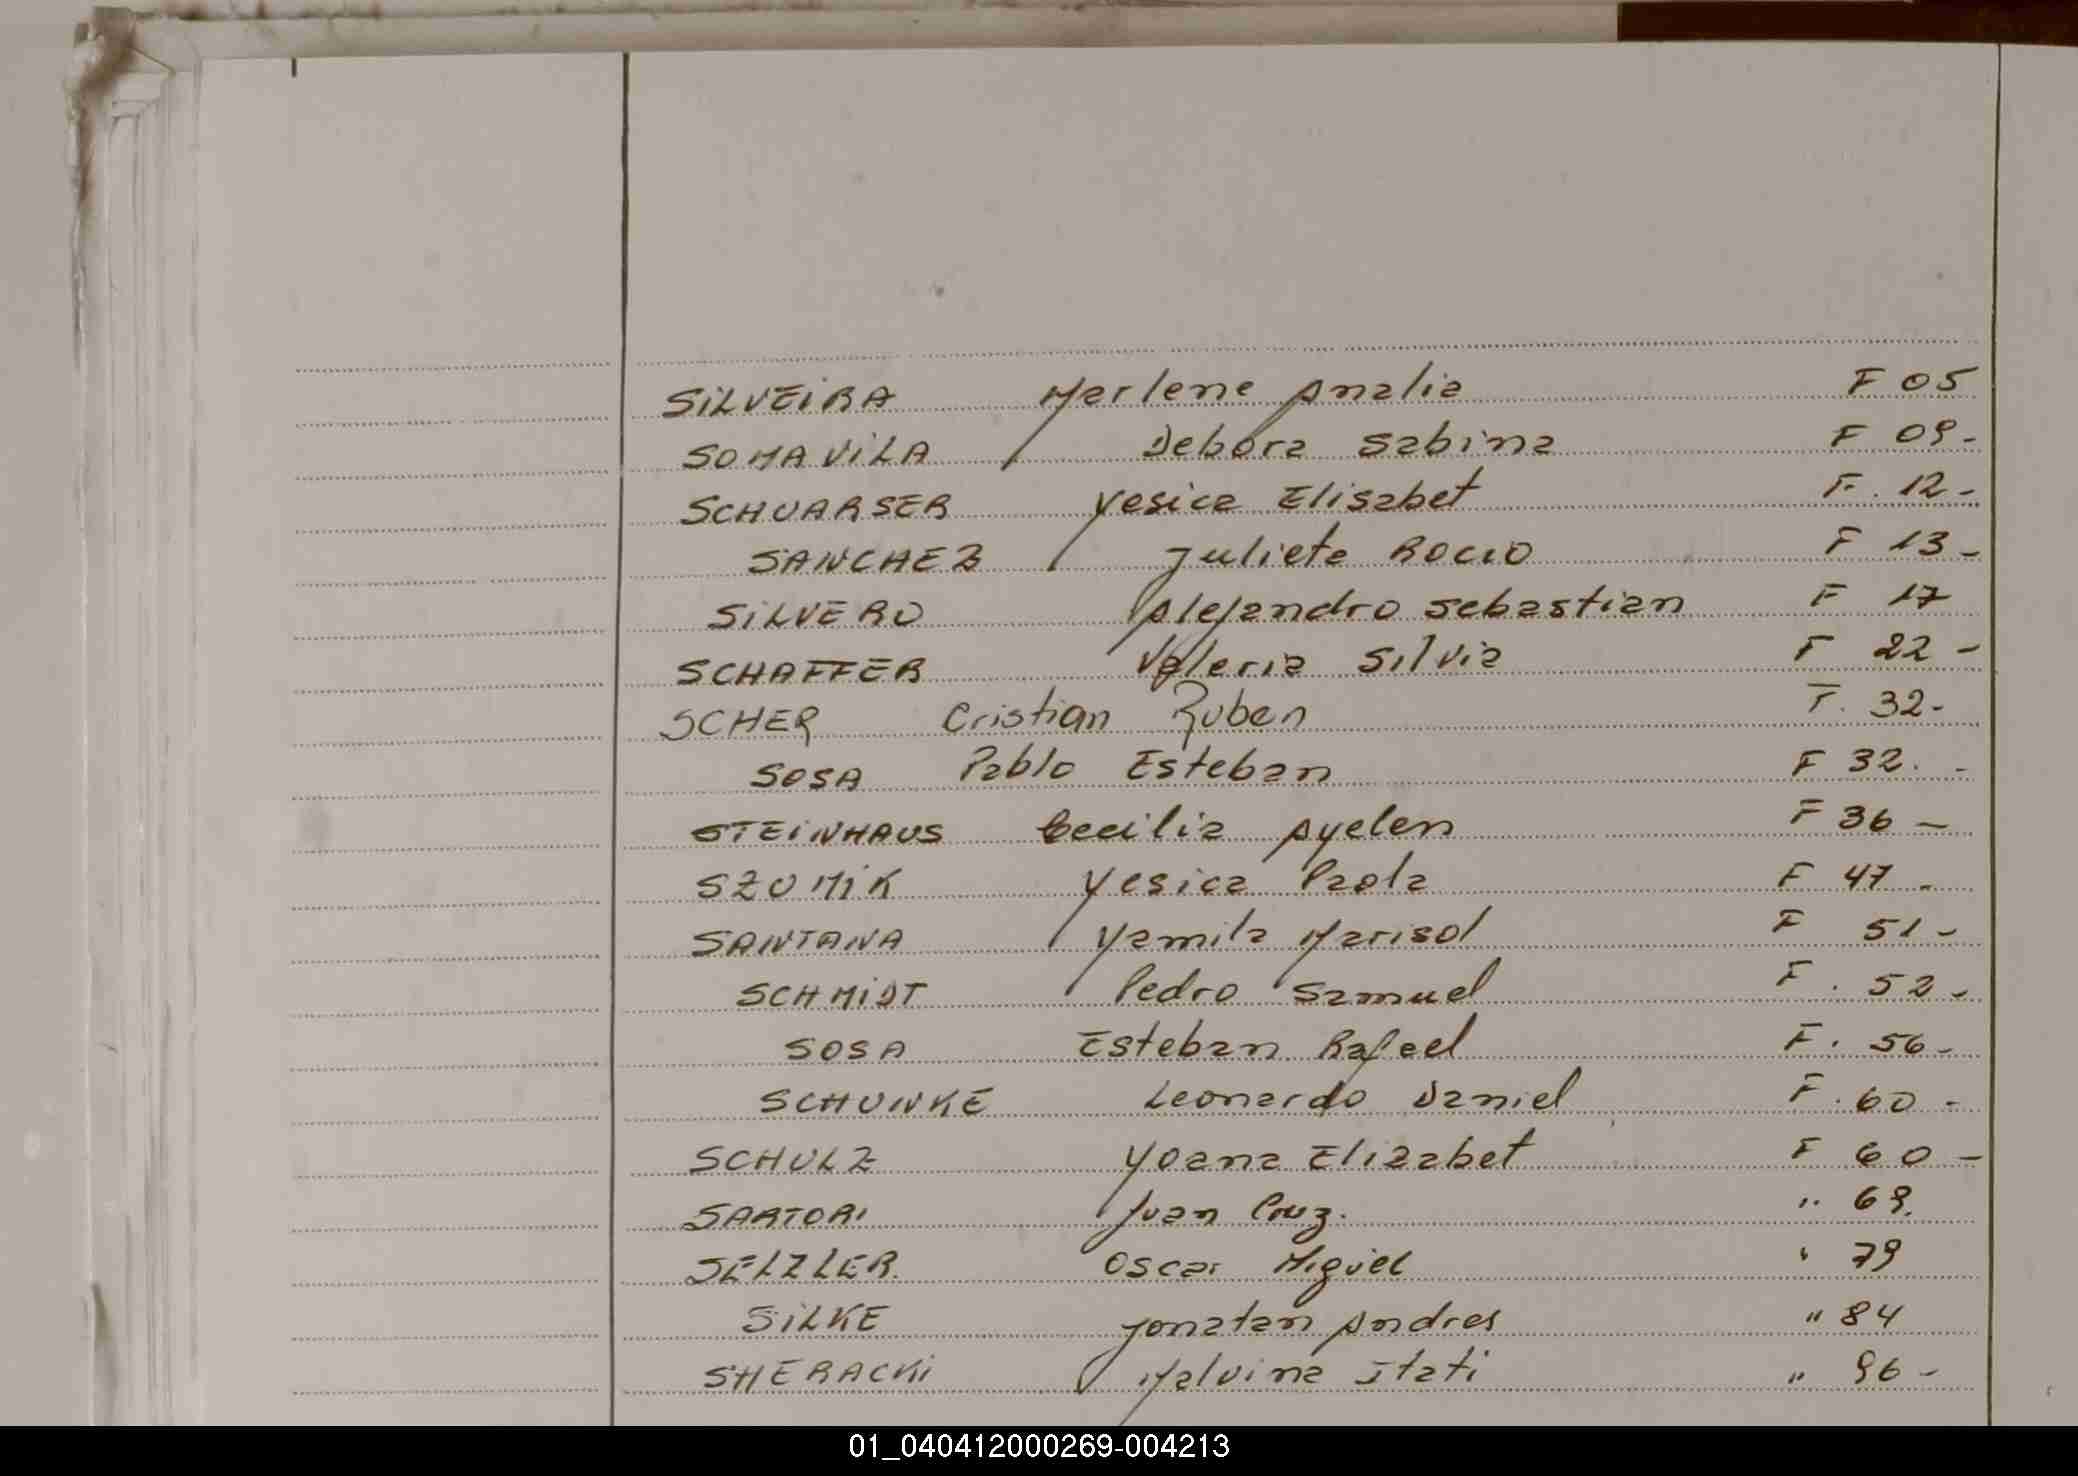 SILVEIRA Marlene Analia F 05
SOMAVILA Debora Sabina F 09-
SCHUARSER Yesica Elisabet F. 12-
SANCHEZ Juliete Rocio F 13-
SILVERO Alejandro Sebastian F 17
SCHAFFER Valeria Silvia F 22-
SCHER Cristian Ruben F. 32-
SOSA Pablo Esteban F 32.-
STEINHAUS Cecilia Ayelen F 36-
SZUMIK Yesica Paola F 47-
SANTANA Yamila Marisol F 51-
SCHMIDT Pedro Samuel F. 52-
SOSA Esteban Rafael F. 56-
SCHUNKE Leonardo Daniel F. 60-
SCHULZ Yoana Elizabet F 60-
SARTORI Juan Cruz. " 69.
SELZLER. Oscar Miguel " 79
SILKE Jonatan Andres " 84
SHERACKI Malvina Itati " 96-
01_040412000269-004213